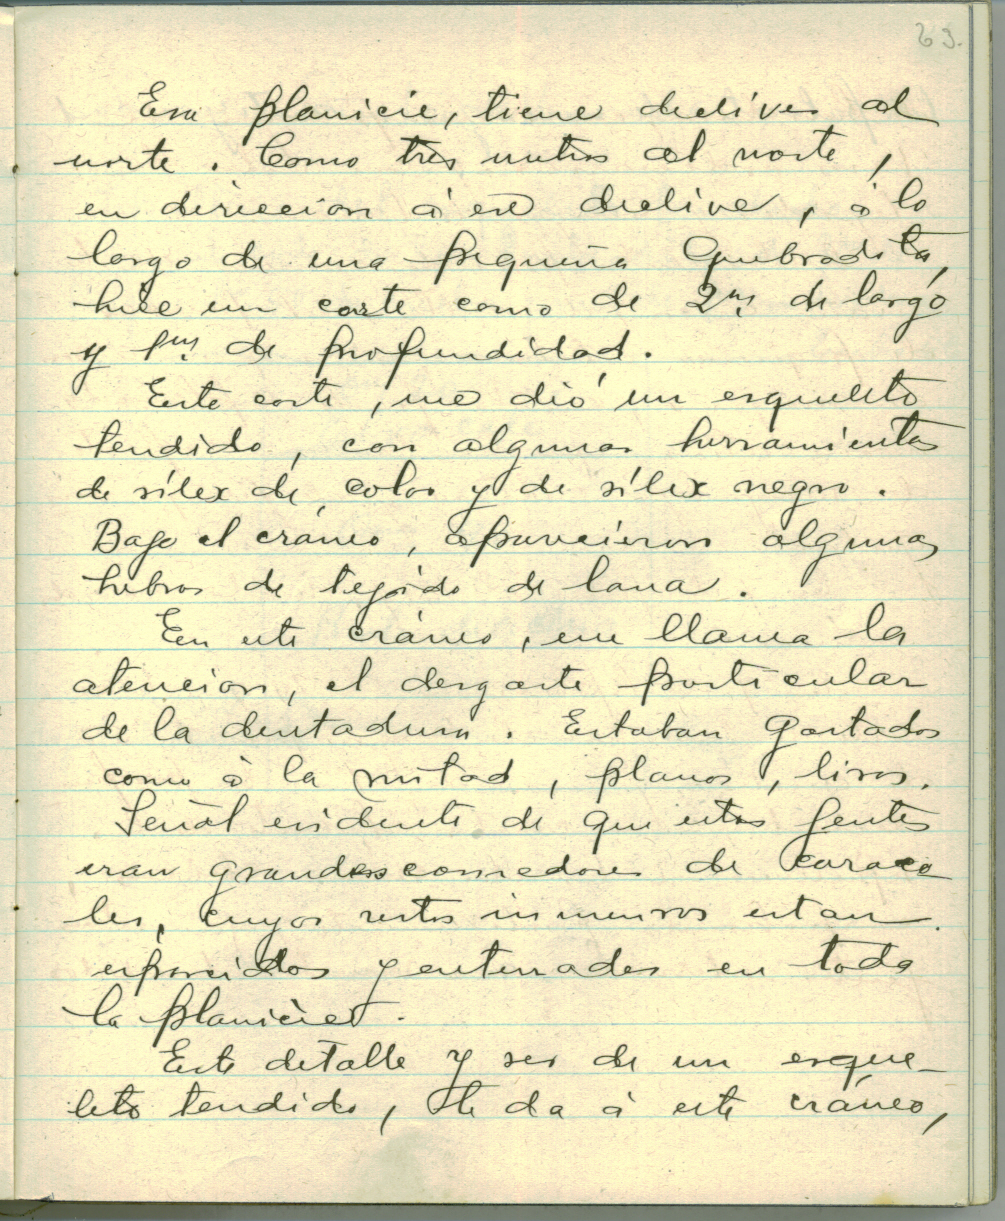 63.
Esa planicie, tiene declive al
norte. Como tres metros al norte,
en direccion á ese declive, á lo
largo de una pequeña Quebradita,
hice un corte como de 2ms. de largo
y 1m. de profundidad.
Este corte, me dió un esqueleto
tendido, con algunas herramientas
de sílex de color y de sílex negro.
Bajo el cráneo, aparecieron algunas
hebras de tejido de lana.
En este cráneo, me llama la
atencion, el desgaste particular
de la dentadura. Estaban gastados
como á la mitad, planos, lisos.
Señal evidente de que estas gentes
eran grandes comedores de caraco
les, cuyos restos inmensos estan
esparcidos y enterrados en toda
la planicie.
Este detalle y ser de un esque-
leto tendido, le da á este cráneo,